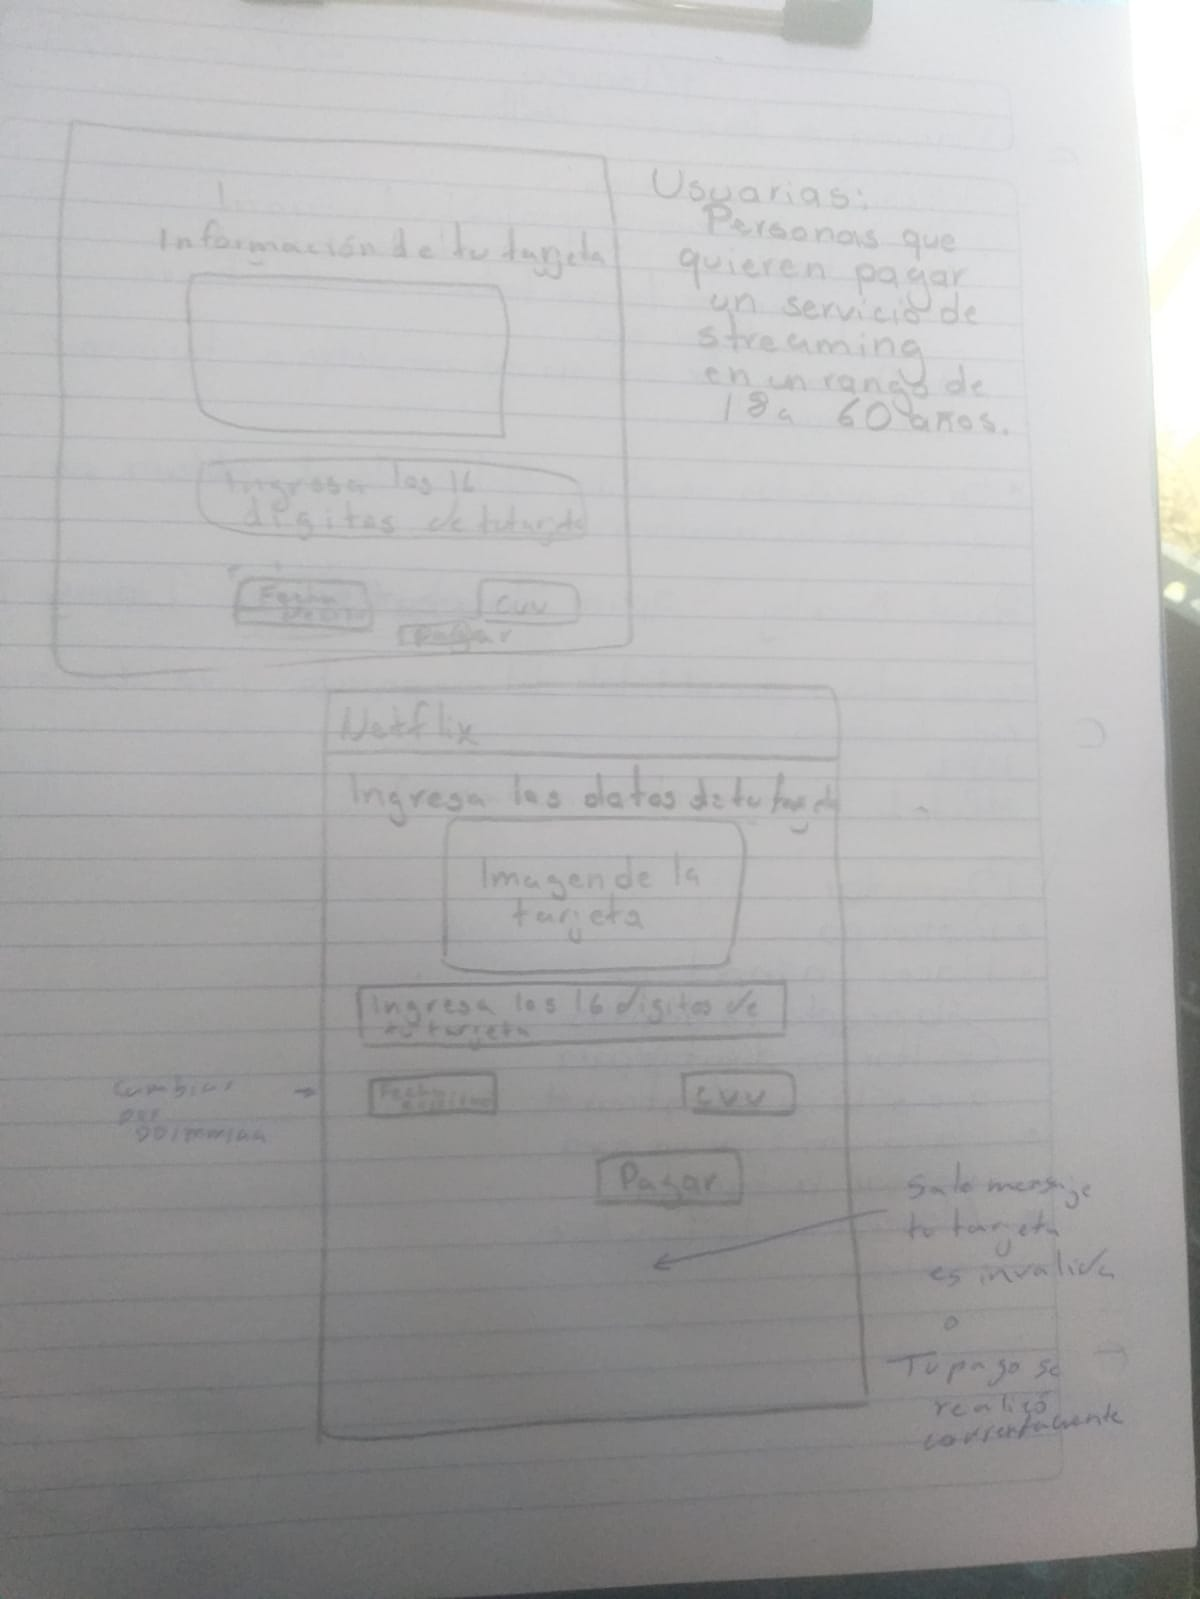 Información de tu tarjeta
Ingresa los 16
digitos de tu tarjeta
Fecha
CVV
Pagar
Usuarias:
Personas que
quieren pagar
un servicio de
streaming
en un rango de
18 a 60 años.
Netflix
Ingresa los datos de tu tarjeta
Imagen de la
tarjeta
Ingresa los 16 digitos de
tu tarjeta
Fecha
CVV
Pagar
Cambiar
por
Sale mensaje
tu tarjeta
es invalida
o
Tu pago se
realizó
correctamente